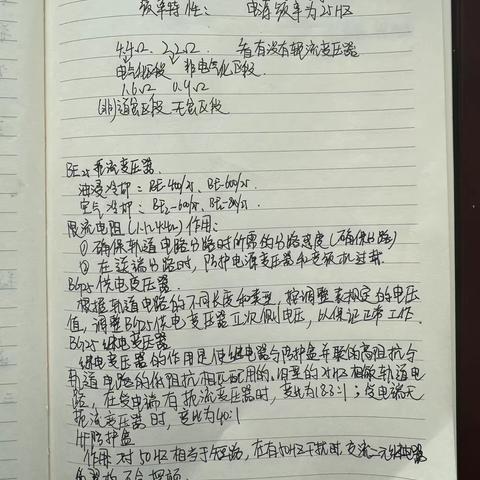 频率特性: 电源频率为25HZ
4.4Ω、2.2Ω. 看有没有轭流变压器
电气化区段 非电气化区段.
1.6Ω 0.9Ω
(非)道岔区段 无岔区段
BE25 扼流变压器.
油浸冷却: BE-400/25、BE-600/25.
空气冷却: BE2-600/25、
限流电阻 作用:
① 确保轨道电路分路时所需的分路灵敏度(确保分路)
② 在送端分路时, 防护电源变压器和变频机过载.
BG25 供电变压器.
根据轨道电路的不同长度和类型, 按调整表规定的电压
值, 调整BG25供电变压器Ⅱ次侧电压, 以保证正常工作.
BG25继电变压器
继电变压器的作用是使继电器与防护盒并联的高阻抗与
轨道电路的低阻抗相匹配用的. 旧型的25HZ相敏轨道电
路, 在受电端有扼流变压器时, 变比为18.3:1; 受电端无
扼流变压器时, 变比为40:1
HF防护盒
作用 对50HZ相当于短路, 在有50HZ干扰时, 交流二元继电器